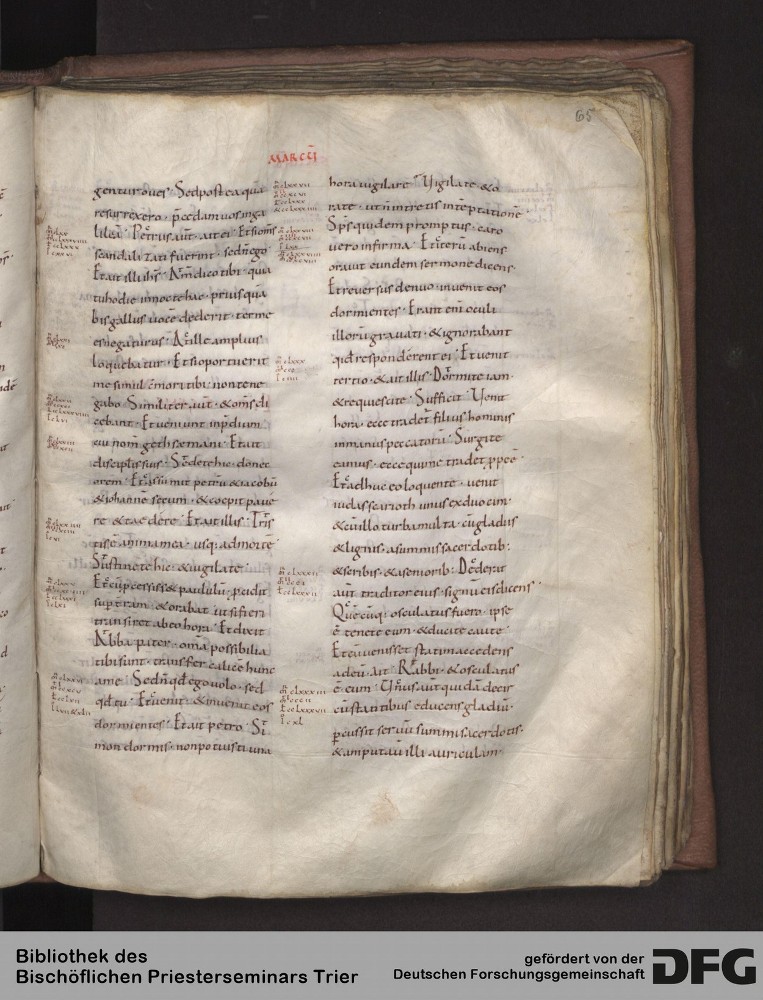 65
MARCUM
gentur oues · Sed post ea quā
resurrexero · p̄cedam uos inga
lileā · Petrus aūt · ait ei · Et si om̄s
scandalizati fuerint · sed n̄ ego
Et ait illi ihs̄ · Am̄ dico tibi · quia
tu hodie in nocte hac · prius quā
bis gallus uocē dederit · ter me
es negaturus · At ille amplius
loquebatur · Et si oportuerit
me simul c̄mori tibi · non te ne
gabo · Similiter aūt · & om̄s di
cebant · Et ueniunt in p̄dium
cui nom̄ gethsemani · Et ait
discipulis suis · Sedete hic · donec
orem · Et assumit petrū & iacobū
& iohannē secum · & coepit pauē
re & taedere · Et ait illis · Tris
tis ē anima mea · usq; ad mortē
Sustinete hic · & uigilate ·
Et cū p̄cessisset paululū · p̄cidit
sup terram · & orabat · ut si fieri
transiret ab eo hora · Et dixit
Abba pater · om̄a possibilia
tibi sunt · transfer calicē hunc
a me · Sed n̄ qd ego uolo · sed
qd tu · Et uenit · & inuenit eos
dormientes · Et ait petro · Si
mon dormis · non potuisti una
hora uigilare · Uigilate & o
rate · ut n̄ intretis in tēptationē ·
Sp̄s quidem promptus · caro
uero infirma · Et iterū abiens
orauit eundem sermonē dicens
Et reuersus denuo inuenit eos
dormientes · Erant eni oculi
illorū grauati · & ignorabant
quid responderent ei · Et uenit
tertio · & ait illis · Dormite iam ·
& requiescite · Sufficit · Uenit
hora · ecce tradet filius hominis
in manus peccatorū · Surgite
eamus · ecce qui me tradet p̄pe ē
Et adhuc eo loquente · uenit
iudas scarioth unus ex duodecim ·
& cū illo turba multa · cū gladiis
& lignis · a summis sacerdotib:
& scribis · & a seniorib: Dederat
aūt traditor eius · signū eis dicens ·
Quēcūq; osculatus fuero · ipse
ē tenete eum · & ducite caute ·
Et cū uenisset statim accedens
ad eū · ait Rabbi · & osculatus
ē eum · Unus aūt quidā de cir
cūstantibus educens gladiū ·
p̄cussit seruū summi sacerdotis ·
& amputauit illi auriculam ·
Bibliothek des
Bischöflichen Priesterseminars Trier
gefördert von der
Deutschen Forschungsgemeinschaft
DFG